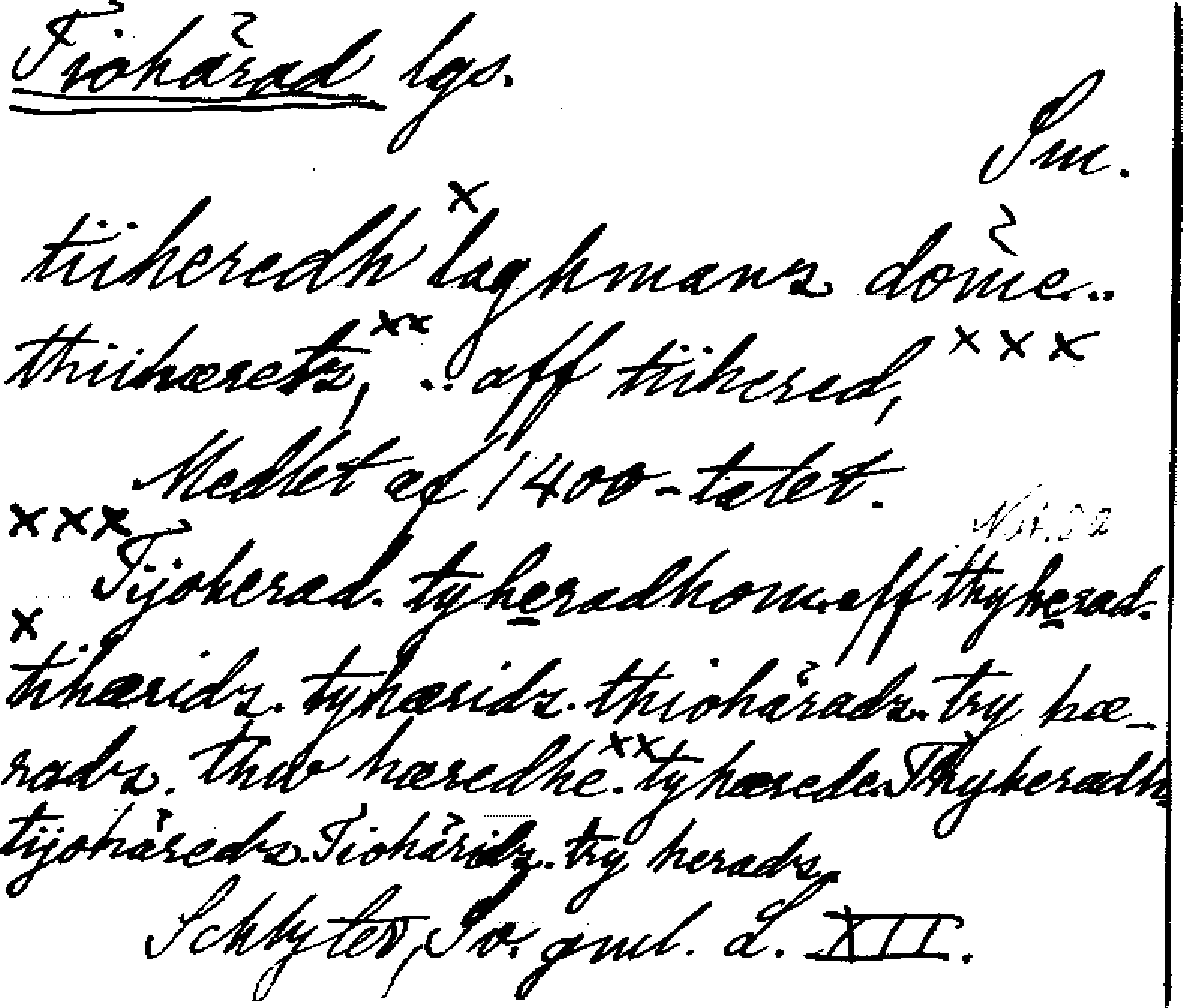 Tiohärad lgs.
Sm.
x
tiiheredh laghmans döme..
xx xxx
thiihæretz, .. aff tiihered,
Medlet af 1400-talet.
xxx
Tijoherad. tyheradhom. aff thyherad.
x
tihærids. tyhærids. thiohärads. try hæ-
xx
rads. thiv hæredhe. tyhærede. Thyheradh
tijohäreds. Tiohärids. try herads.
Schlyter, Sv. gml. L. XII.